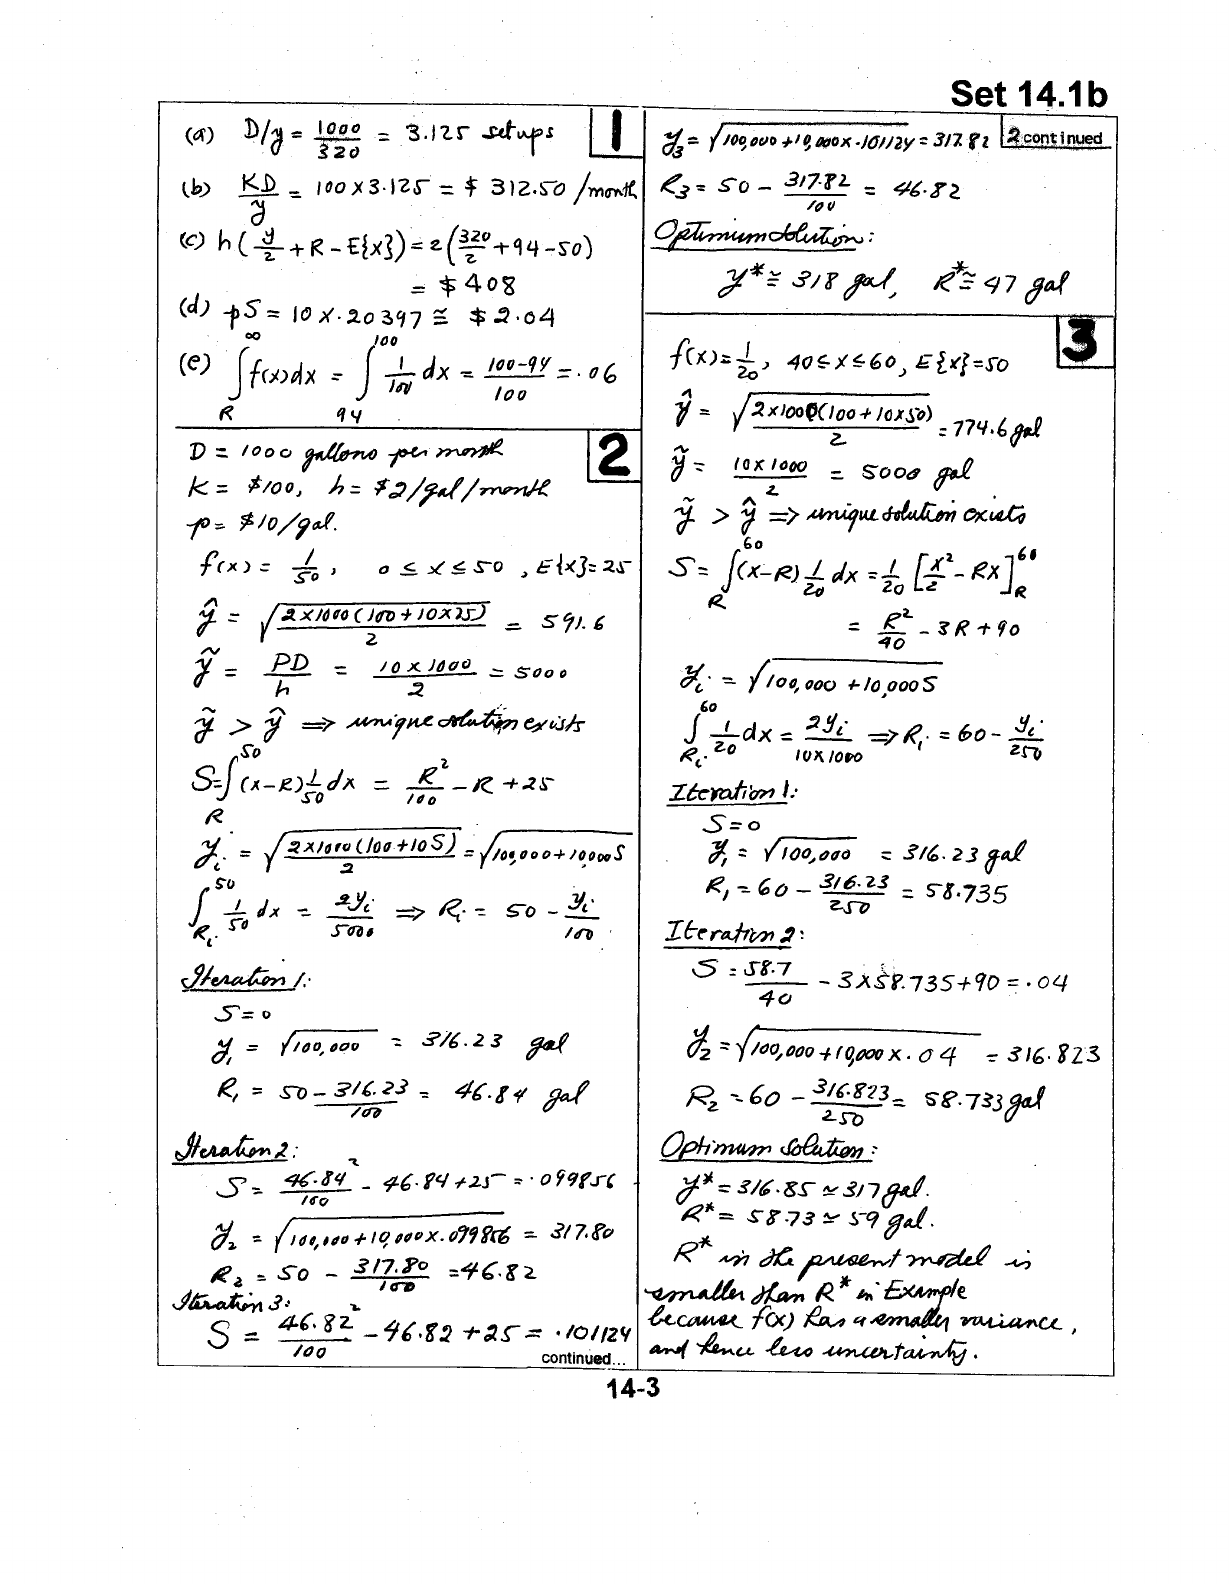 Set 14.1b
1
(a) D/y = 1000/320 = 3.125 setups
(b) KD/y = 100 x 3.125 = $ 312.50 /month
(c) h ( y/2 + R - E{x}) = 2 ( 320/2 + 94 - 50)
= $ 408
(d) pS = 10 x .20397 ≅ $ 2.04
(e) ∫_R^∞ f(x)dx = ∫_94^100 1/100 dx = 100-94/100 = .06
2
D = 1000 gallons per month
K = $100, h = $2/gal/month
p = $10/gal.
f(x) = 1/50 , 0 ≤ x ≤ 50 , E{x}= 25
ŷ = √(2x1000(100+10x25)/2) = 591.6
ỹ = PD/h = 10 x 1000/2 = 5000
ỹ > ŷ ⇒ unique solution exists
S = ∫_R^50 (x-R) 1/50 dx = R²/100 - R + 25
y_i = √(2x1000(100+10S)/2) = √(100,000+10,000S)
∫_{R_i}^50 1/50 dx = 2y_i/5000 ⇒ R_i = 50 - y_i/100
Iteration 1:
S = 0
y₁ = √100,000 = 316.23 gal
R₁ = 50 - 316.23/100 = 46.84 gal
Iteration 2:
S = 46.84²/100 - 46.84 + 25 = .099856
y₂ = √(100,000 + 10,000x.099856) = 317.80
R₂ = 50 - 317.80/100 = 46.82
Iteration 3:
S = 46.82²/100 - 46.82 + 25 = .101124
continued...
y₃ = √(100,000 + 10,000x.101124) = 317.82
2 continued
R₃ = 50 - 317.82/100 = 46.82
Optimum solution:
y* ≅ 318 gal, R* ≅ 47 gal
3
f(x) = 1/20 , 40 ≤ x ≤ 60 , E{x} = 50
ŷ = √(2x1000(100+10x50)/2) = 774.6 gal
ỹ = 10 x 1000/2 = 5000 gal
ỹ > ŷ ⇒ unique solution exists
S = ∫_R^60 (x-R) 1/20 dx = 1/20 [x²/2 - Rx]_R^60
= R²/40 - 3R + 90
y_i = √(100,000 + 10,000S)
∫_{R_i}^60 1/20 dx = 2y_i/10x1000 ⇒ R_i = 60 - y_i/250
Iteration 1:
S = 0
y₁ = √100,000 = 316.23 gal
R₁ = 60 - 316.23/250 = 58.735
Iteration 2:
S = 58.7/40 - 3x58.735+90 = .04
y₂ = √(100,000 + 10,000 x .04) = 316.823
R₂ = 60 - 316.823/250 = 58.733 gal
Optimum Solution:
y* = 316.85 ≃ 317 gal.
R* = 58.73 ≃ 59 gal.
R* in the present model is
smaller than R* in Example
because f(x) has a smaller variance,
and hence less uncertainty.
14-3